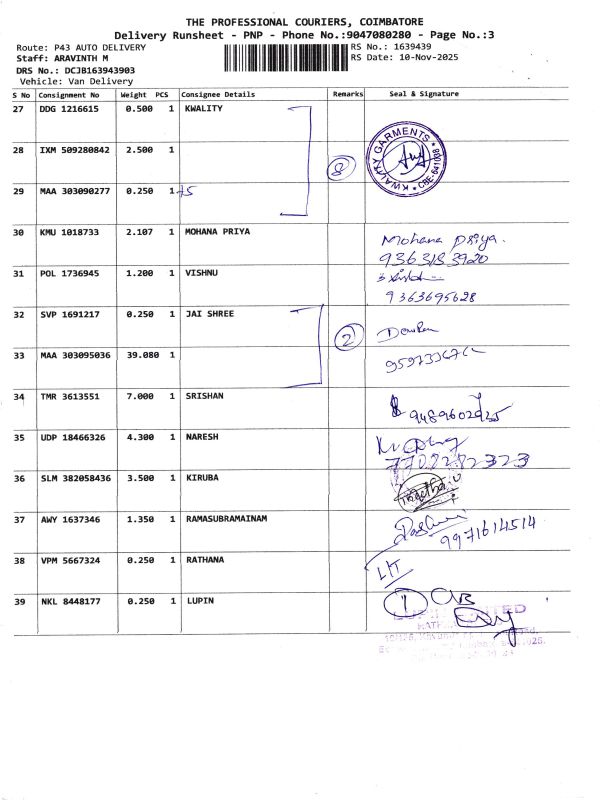 THE PROFESSIONAL COURIERS, COIMBATORE
Delivery Runsheet - PNP - Phone No.:9047080280 - Page No.:3
Route: P43 AUTO DELIVERY RS No.: 1639439
Staff: ARAVINTH M RS Date: 10-Nov-2025
DRS No.: DCJB163943903
Vehicle: Van Delivery
S No Consignment No Weight PCS Consignee Details Remarks Seal & Signature
27 DDG 1216615 0.500 1 KWALITY
KWALITY GARMENTS * CBE-641008 *
28 IXM 509280842 2.500 1
8
29 MAA 303090277 0.250 1
30 KMU 1018733 2.107 1 MOHANA PRIYA
Mohana Priya.
9363183920
31 POL 1736945 1.200 1 VISHNU
9363695628
32 SVP 1691217 0.250 1 JAI SHREE
2
33 MAA 303095036 39.080 1
34 TMR 3613551 7.000 1 SRISHAN
35 UDP 18466326 4.300 1 NARESH
7708282323
36 SLM 382058436 3.500 1 KIRUBA
37 AWY 1637346 1.350 1 RAMASUBRAMAINAM
9971614514
38 VPM 5667324 0.250 1 RATHANA
39 NKL 8448177 0.250 1 LUPIN
1